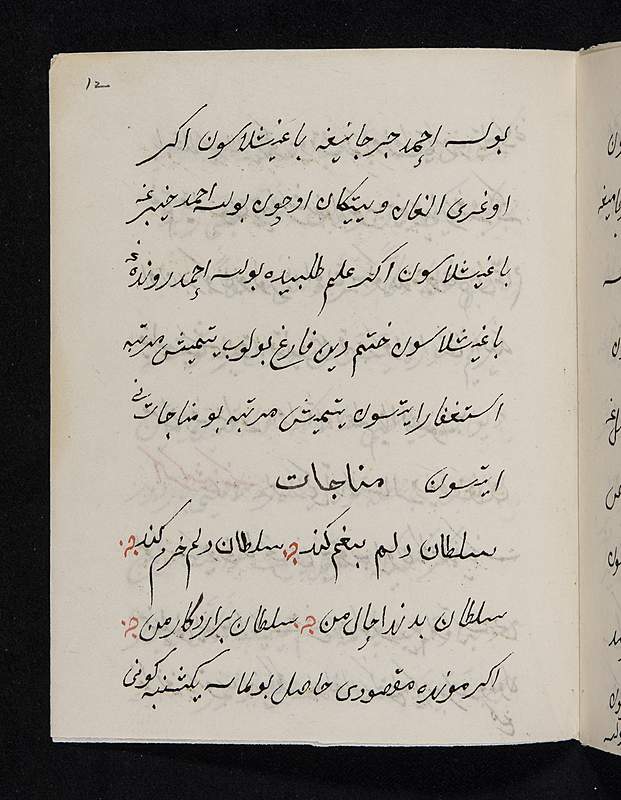 ۱۲
بولسه احمد جرجانیغه باغیشلاسون اکر
اوغری الغان و ییتیکان اوچون بولسه احمد خیبرغه
باغیشلاسون اکر علم طلبیده بولسه احمد رونده غه
باغیشلاسون ختم دین فارغ بولوب یتمیش مرتبه
استغفار ایتسون یتمیش مرتبه بو مناجات نی
ایتسون مناجات
سلطان دلم بیغم کند سلطان دلم خرم کند
سلطان بدند احال من سلطان برارد کار من
اکر مونده مقصودی حاصل بولماسه یکشنبه کونی